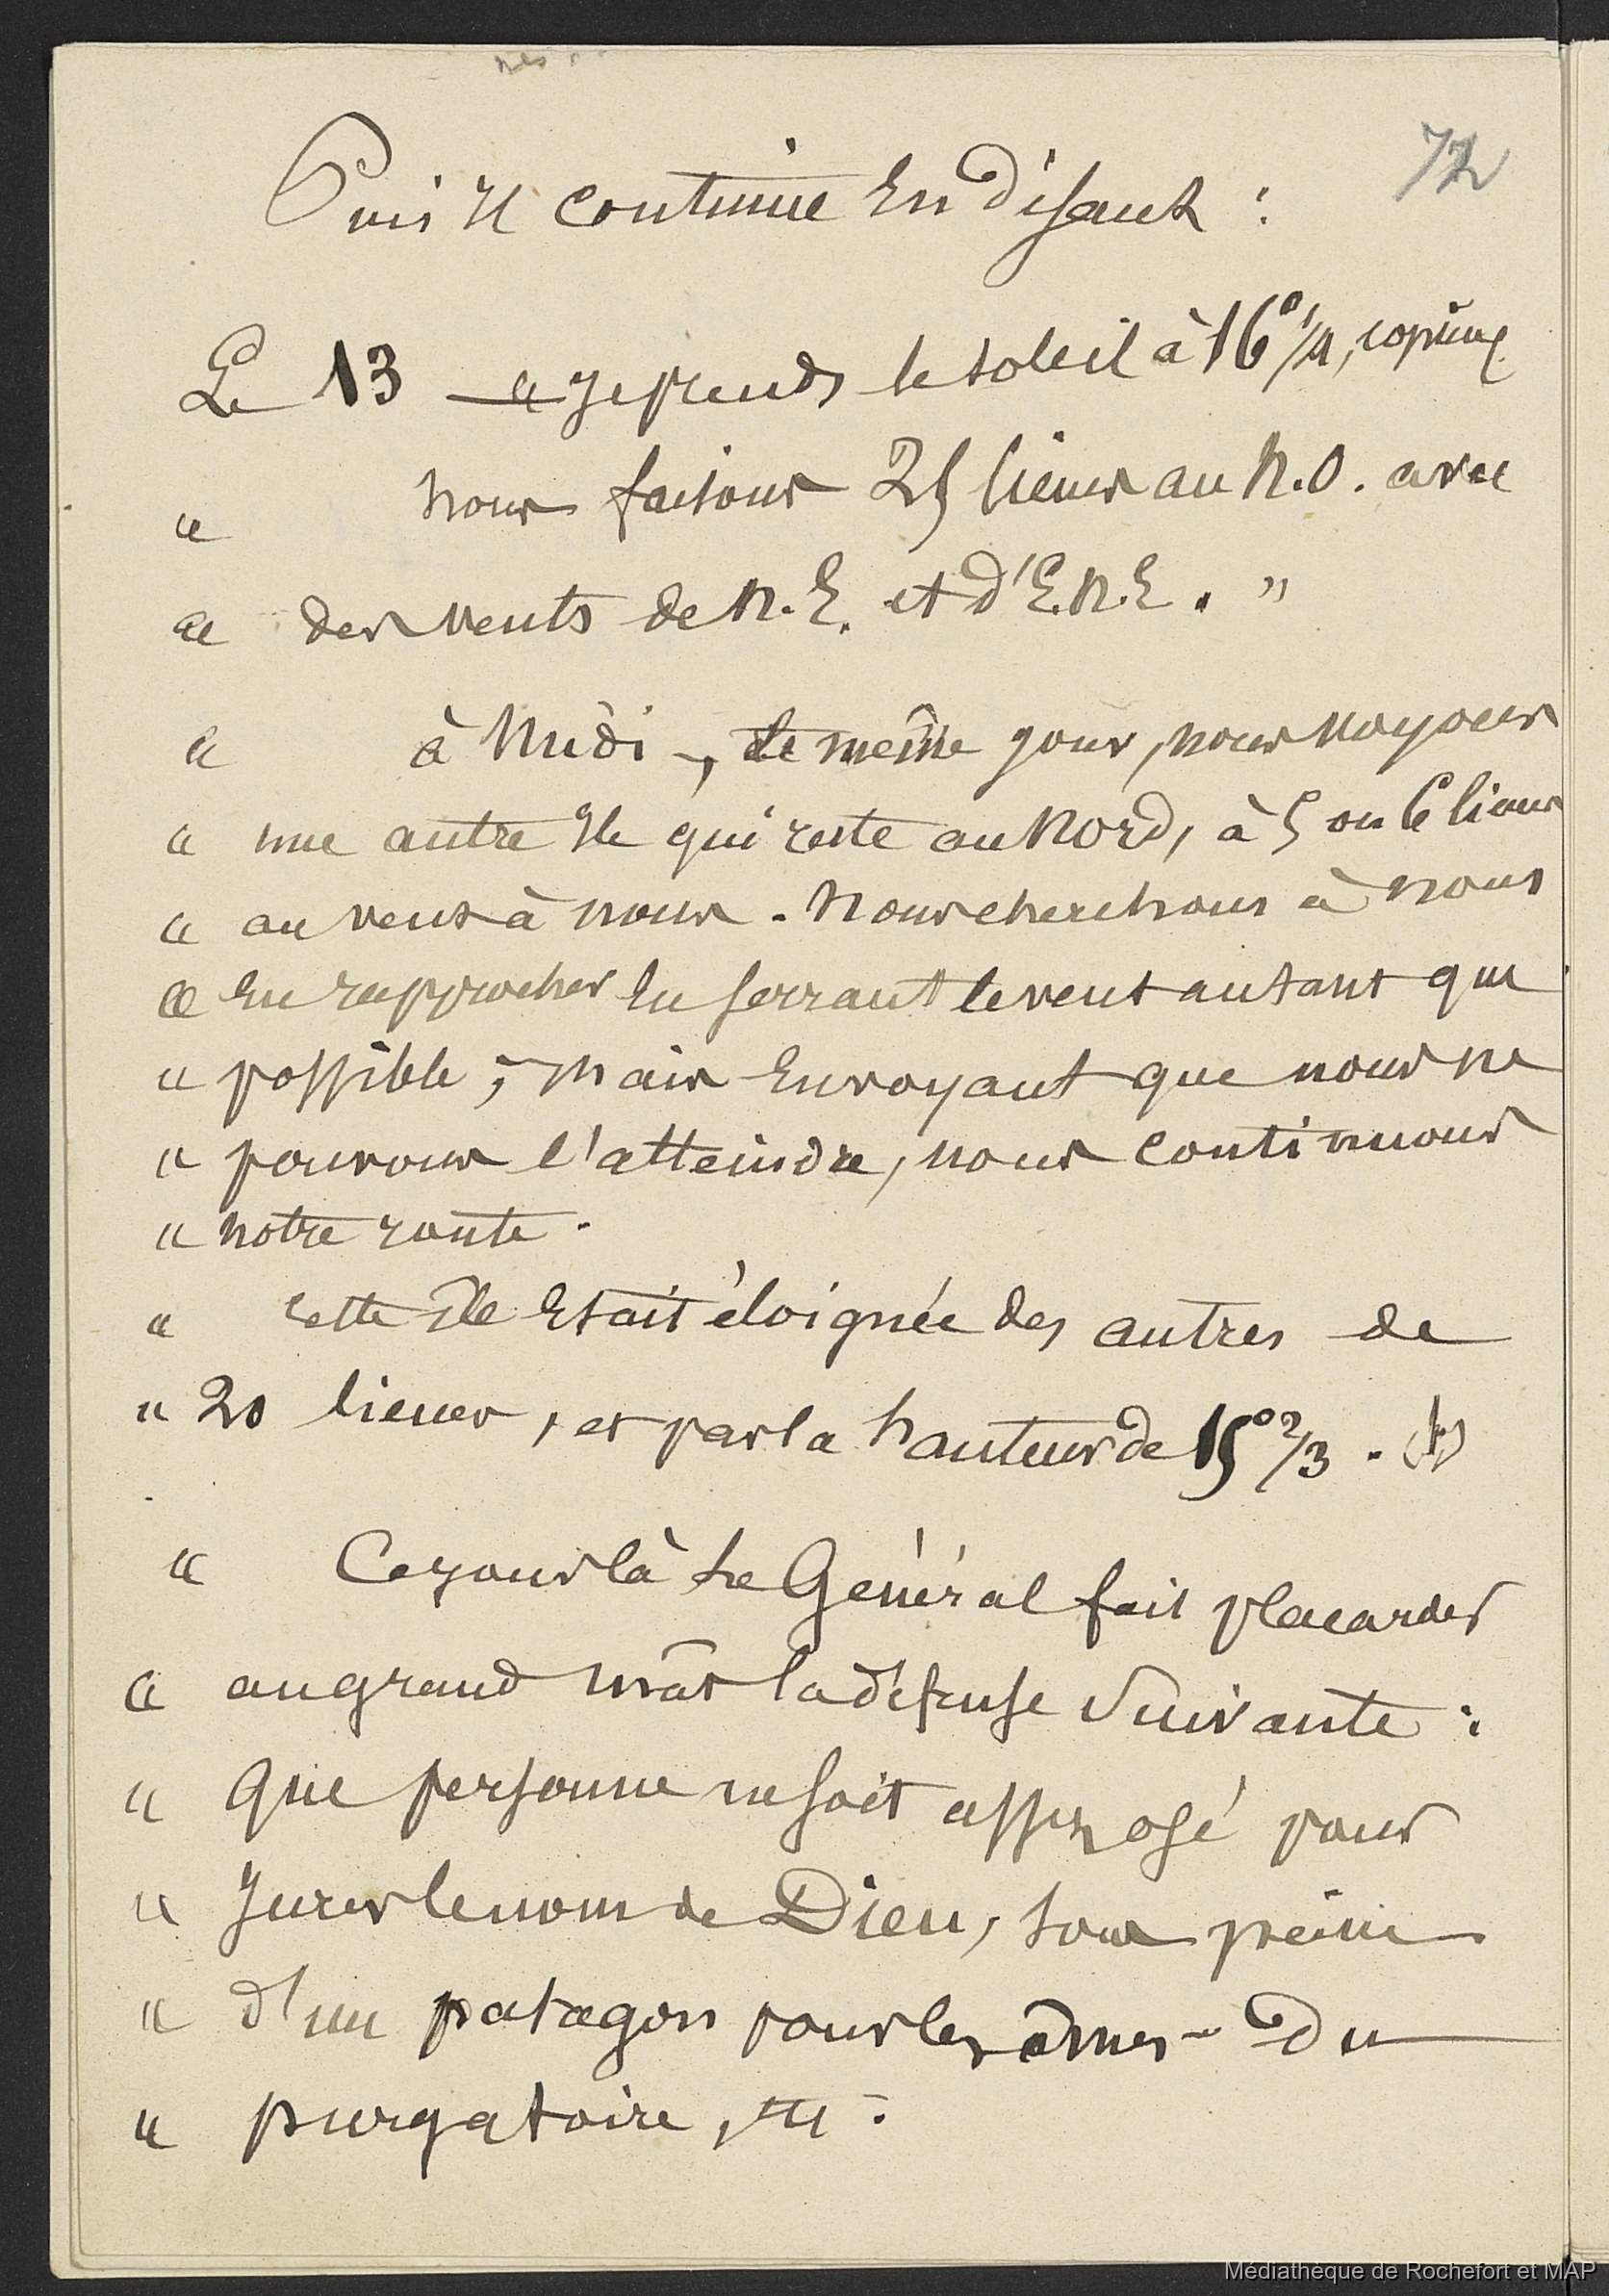 72
Puis Il continue En disant :
Le 13 — « Je prends le soleil à 16° 1/4, copieux,
« nous faisons 25 lieues au N.O. avec
« des vents de N.E. et d'E.N.E. . "
« à Midi -, le même jour, nous voyons
« une autre Ile qui reste au Nord, à 5 ou 6 lieues
« au vent à nous . Nous cherchons à nous
« En rapprocher En serrant le vent autant que
« possible ; Mais En voyant que nous ne
« pouvons l'atteindre, nous continuons
« notre route .
« Cette île Etait éloignée des autres de
« 20 lieues , et par la hauteur de 15° 2/3 . (1)
« Ce jour là Le Général fait placarder
« au grand mât la défense Suivante :
« Que personne ne soit assez osé pour
« Jurer le nom de Dieu, sous peine
« d'un patagon pour les âmes - du
« purgatoire , etc :
Médiathèque de Rochefort et MAP